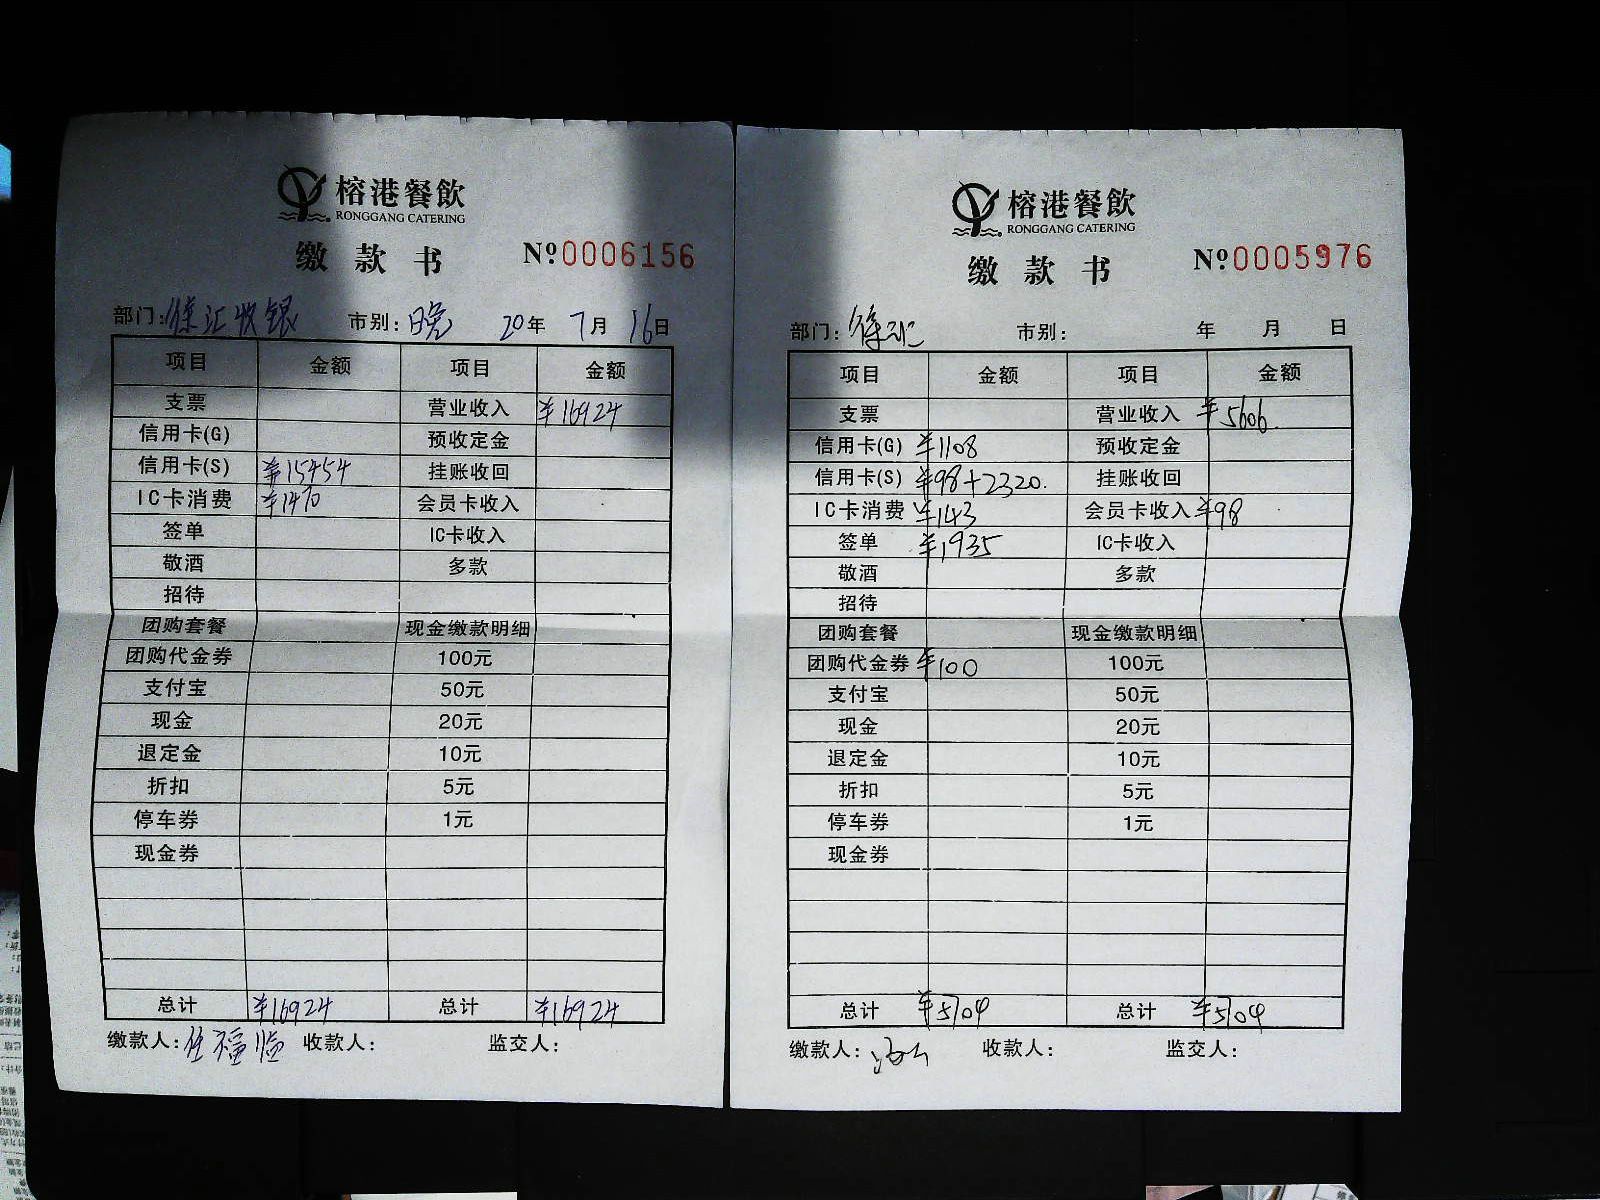 榕港餐飲
RONGGANG CATERING
缴款书 Nº0006156
部门:徐汇收银 市别:晚 20年 7月 16日
项目 金额 项目 金额
支票 营业收入 ¥16924
信用卡(G) 预收定金
信用卡(S) ¥15454 挂账收回
IC卡消费 ¥1470 会员卡收入
签单 IC卡收入
敬酒 多款
招待
团购套餐 现金缴款明细
团购代金券 100元
支付宝 50元
现金 20元
退定金 10元
折扣 5元
停车券 1元
现金券
总计 ¥16924 总计 ¥16924
缴款人:任福临 收款人: 监交人:
榕港餐飲
RONGGANG CATERING
缴款书 Nº0005976
部门:徐汇 市别: 年 月 日
项目 金额 项目 金额
支票 营业收入 ¥5606.
信用卡(G) ¥1108 预收定金
信用卡(S) ¥98+2320. 挂账收回
IC卡消费 ¥143 会员卡收入 ¥98
签单 ¥1935 IC卡收入
敬酒 多款
招待
团购套餐 现金缴款明细
团购代金券 ¥100 100元
支付宝 50元
现金 20元
退定金 10元
折扣 5元
停车券 1元
现金券
总计 ¥5704 总计 ¥5704
缴款人: 收款人: 监交人: